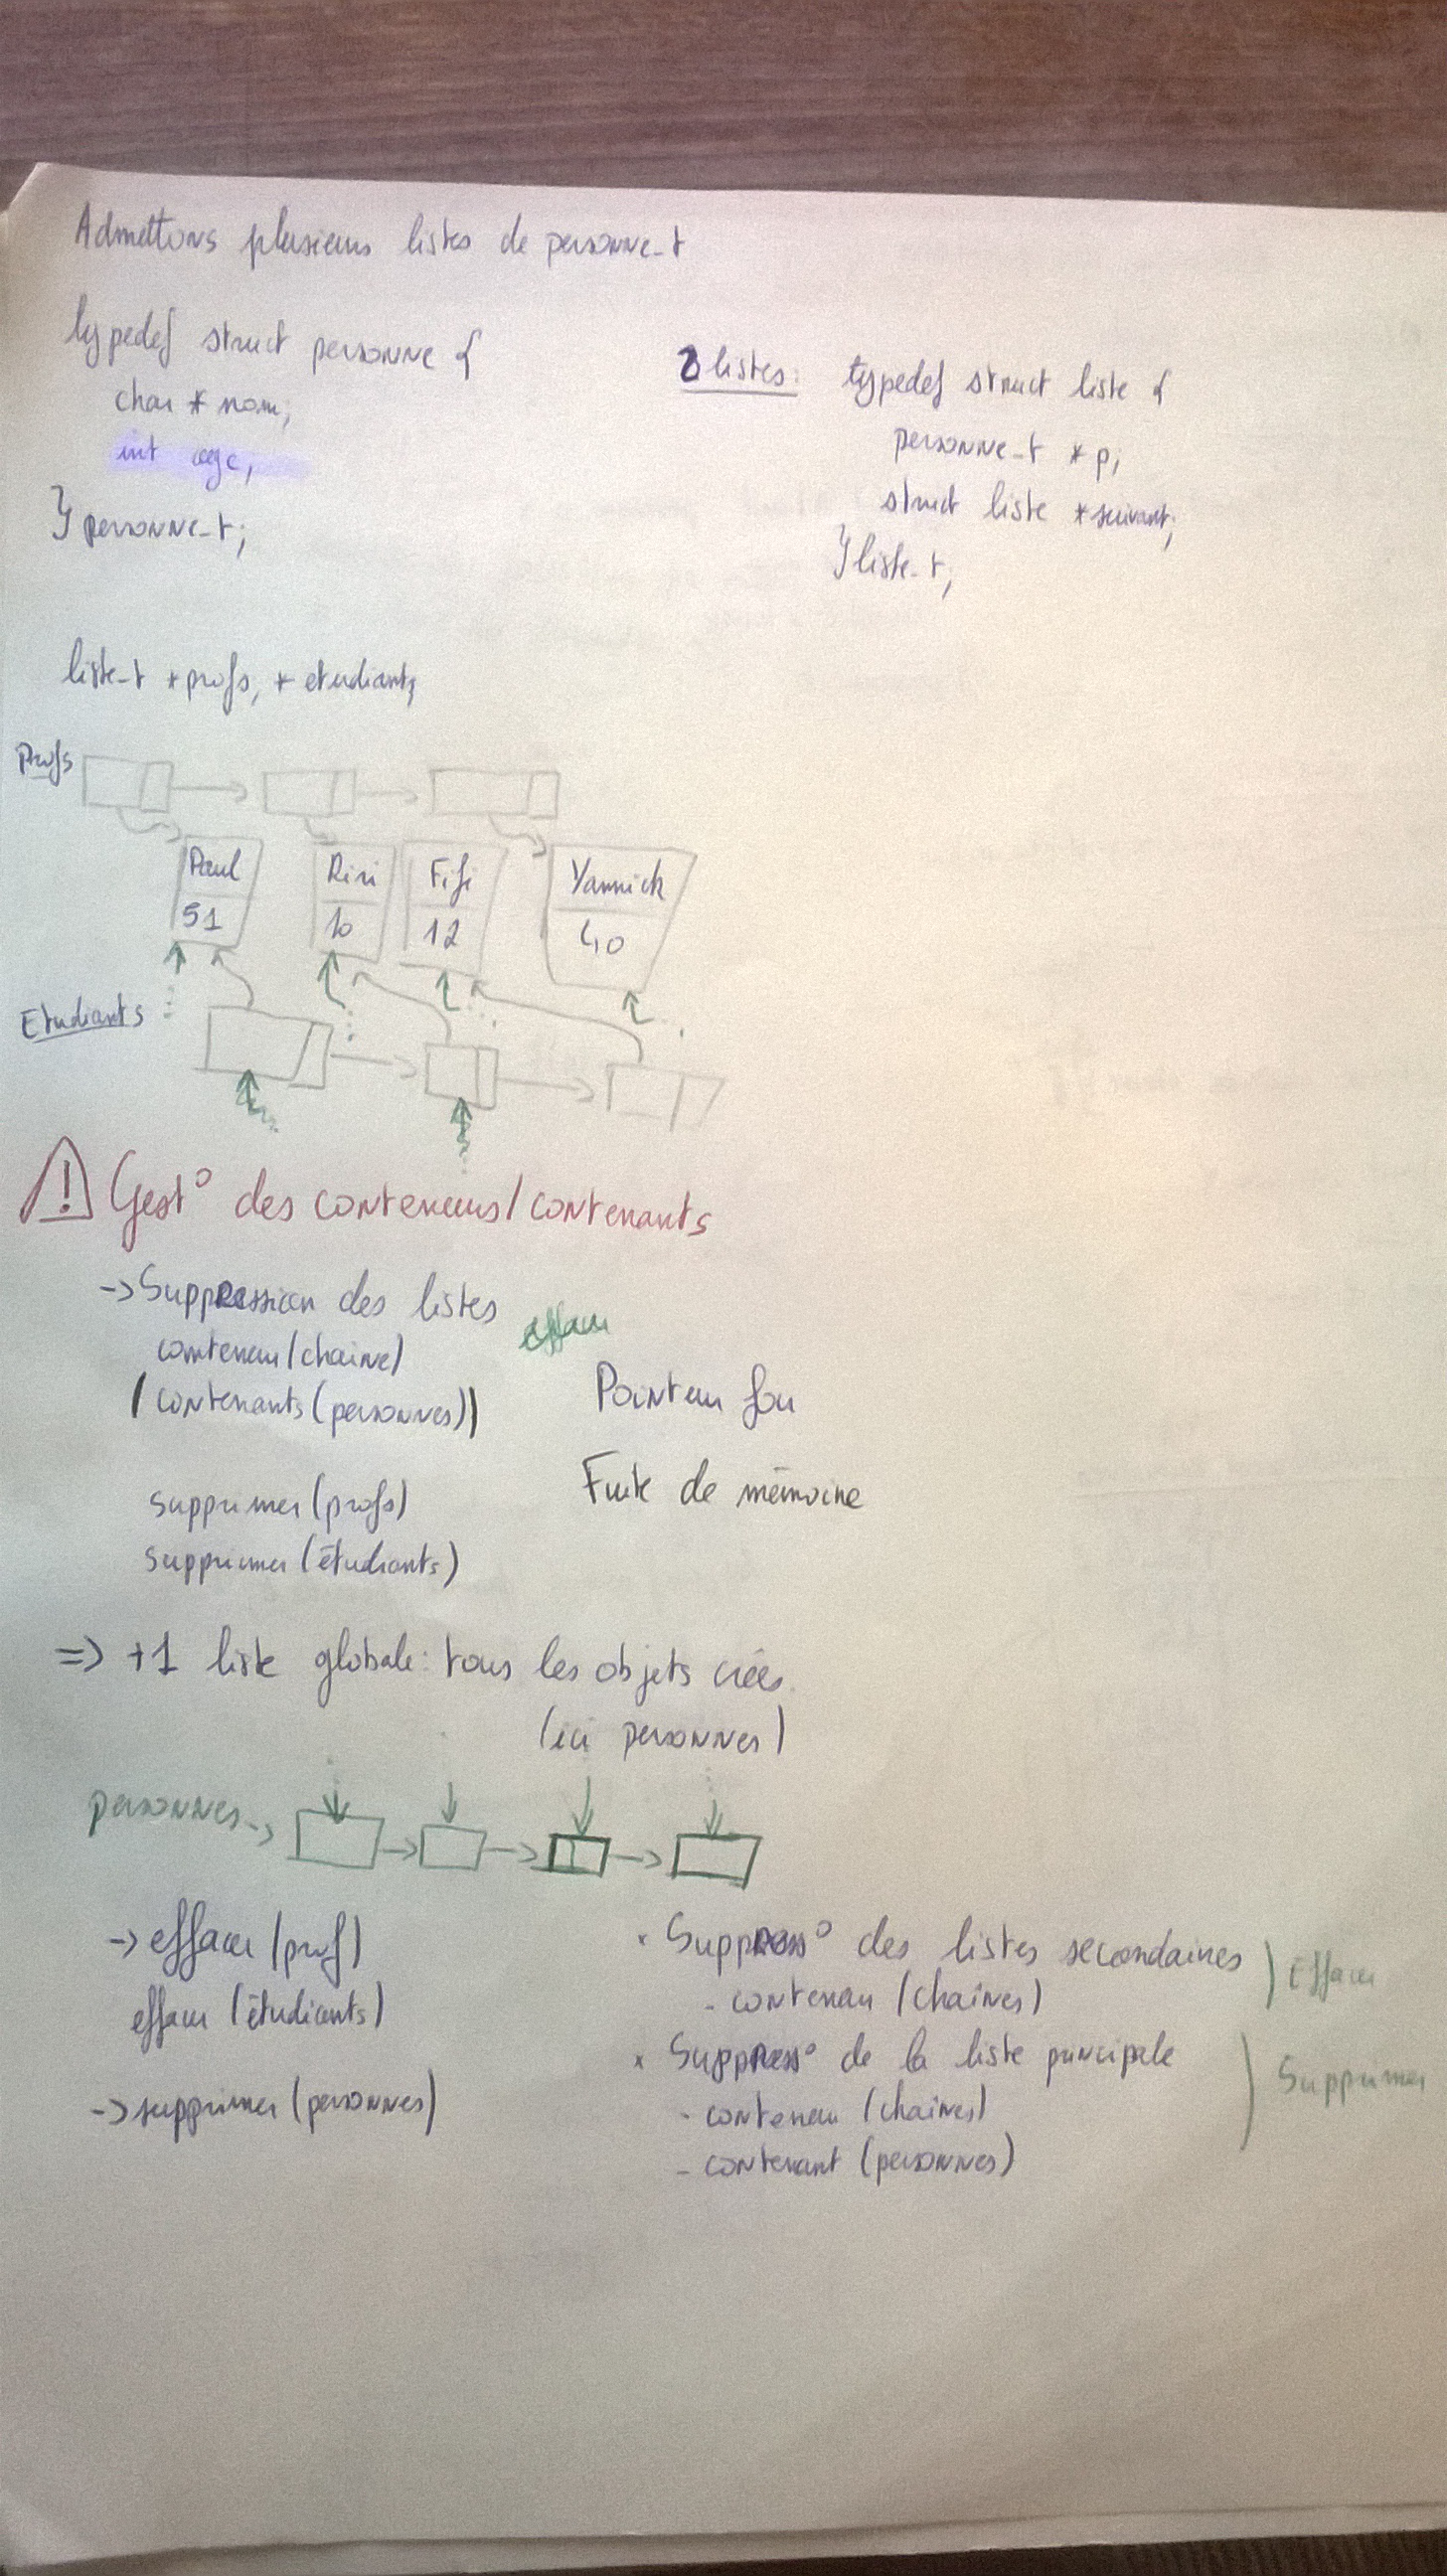 Admettons plusieurs listes de personne_t
typedef struct personne {
char * nom;
int age;
} personne_t;
2 listes: typedef struct liste {
personne_t * p;
struct liste * suivant;
} liste_t;
liste_t * profs, * etudiants;
Profs
Paul Riri Fifi Yannick
51 10 12 40
Etudiants
! Gest° des conteneurs/contenants
-> Suppression des listes
effacer
conteneur (chaine)
(contenants (personnes))
Pointeur fou
Fuite de mémoire
supprimer (profs)
supprimer (étudiants)
=> +1 liste globale: tous les objets créés.
(ici personnes)
personnes ->
-> effacer (prof)
effacer (étudiants)
-> supprimer (personnes)
x Suppress° des listes secondaires ) Effacer
- conteneur (chaînes)
x Suppress° de la liste principale ) Supprimer
- conteneur (chaines)
- contenant (personnes)